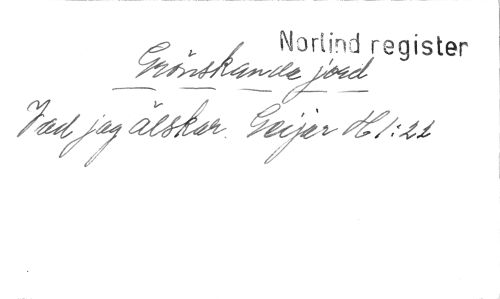 Norlind register
Grönskande jord
Vad jag älskar. Geijer H 1:22